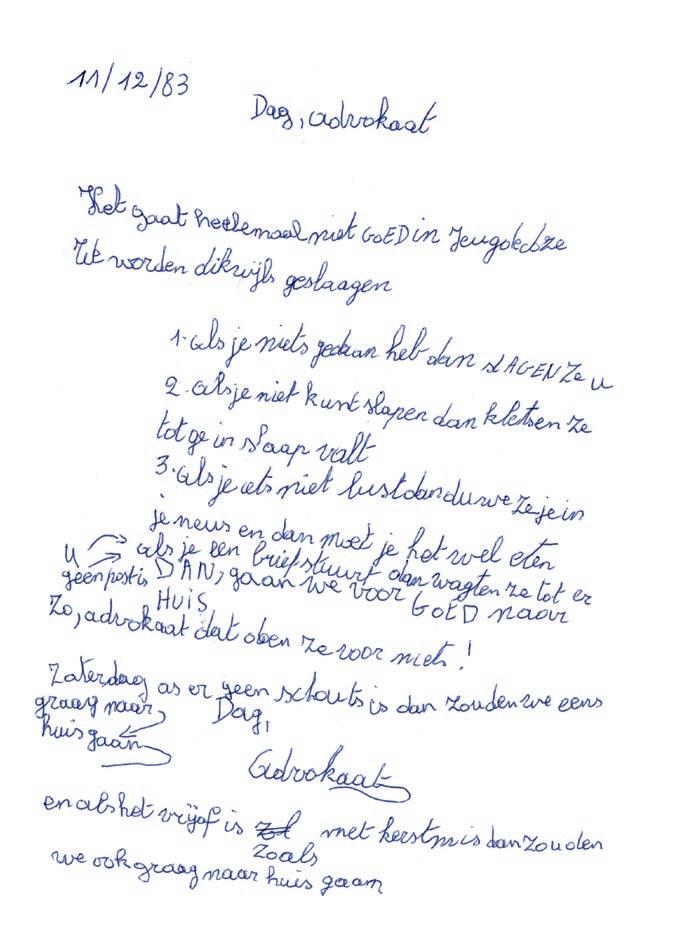 11/12/83
Dag, advokaat
Het gaat heelemaal niet GOED in
We worden dikwijls geslaagen
1. als je niets gedaan heb dan slAGEN ze u
2. als je niet kunt slapen dan kletsen ze
tot ge in slaap valt
3. als je iets niet lust dan duwe ze je in
je neus en dan moet je het wel eten
als je een brief stuurt dan wagten ze tot er
U
geen post is DAN, gaan we voor GOED naar
HUIS
Zo, advokaat dat doen ze voor niets!
Zaterdag as er geen schouts is dan zouden we eens
graag naar
huis gaan
Dag,
Advokaat
en als het vrijaf is met kerstmis dan zouden
zoals
we ook graag naar huis gaan